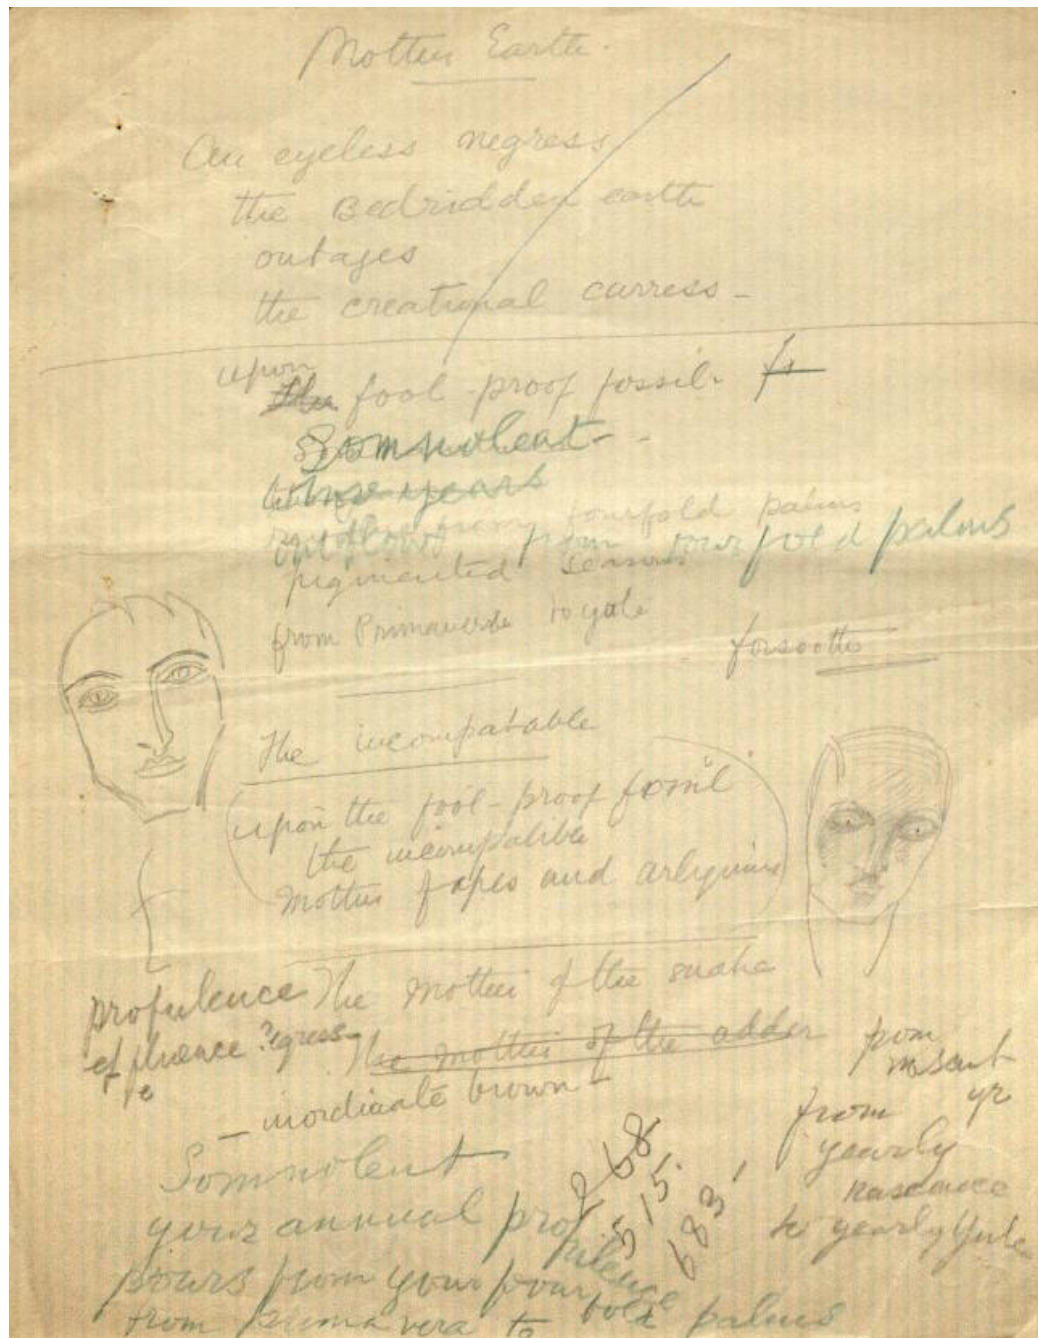 Mother Earth.
An eyeless negress
the Bedridden earth
outages
the creational carress -
upon
the fool-proof fossil. fo
Somnolent - -
those years
outflows from fourfold palms
outflows from your fold palms
pigmented seasons
from Primavera to yule
forsooth
The incompatable
upon the fool-proof fossil
the incompatible
Mother of apes and arlequins
The Mother of the snake
profulence
effluence ?egress
The mother of the adder
- inordinate brown -
from
nascent
from yr
yearly
nascence
to yearly Yule
268
515.
683
Somnolent
your annual profulence
pours from your fourfold palms
from primavera to